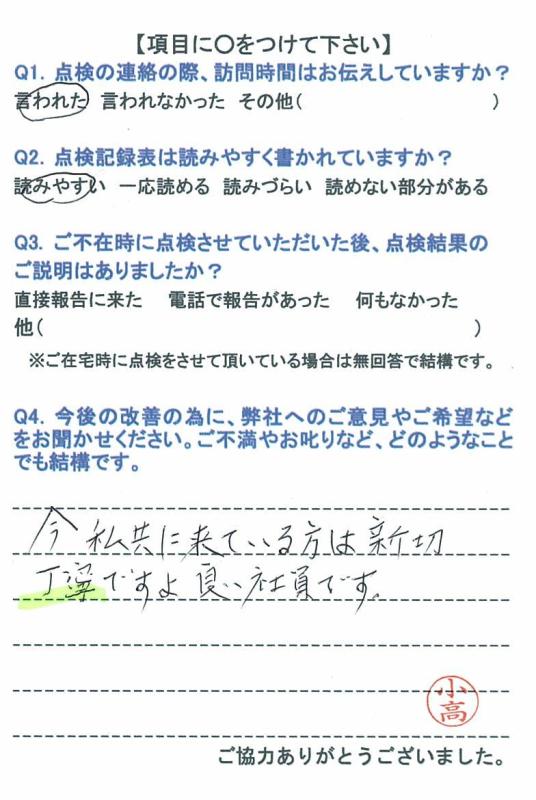 【項目に〇をつけて下さい】
Q1. 点検の連絡の際、訪問時間はお伝えしていますか？
言われた 言われなかった その他( )
Q2. 点検記録表は読みやすく書かれていますか？
読みやすい 一応読める 読みづらい 読めない部分がある
Q3. ご不在時に点検させていただいた後、点検結果の
ご説明はありましたか？
直接報告に来た 電話で報告があった 何もなかった
他( )
※ご在宅時に点検をさせて頂いている場合は無回答で結構です。
Q4. 今後の改善の為に、弊社へのご意見やご希望など
をお聞かせください。ご不満やお叱りなど、どのようなこと
でも結構です。
今 私共に来ている方は新切
丁寧ですよ 良い社員です。
小高
ご協力ありがとうございました。